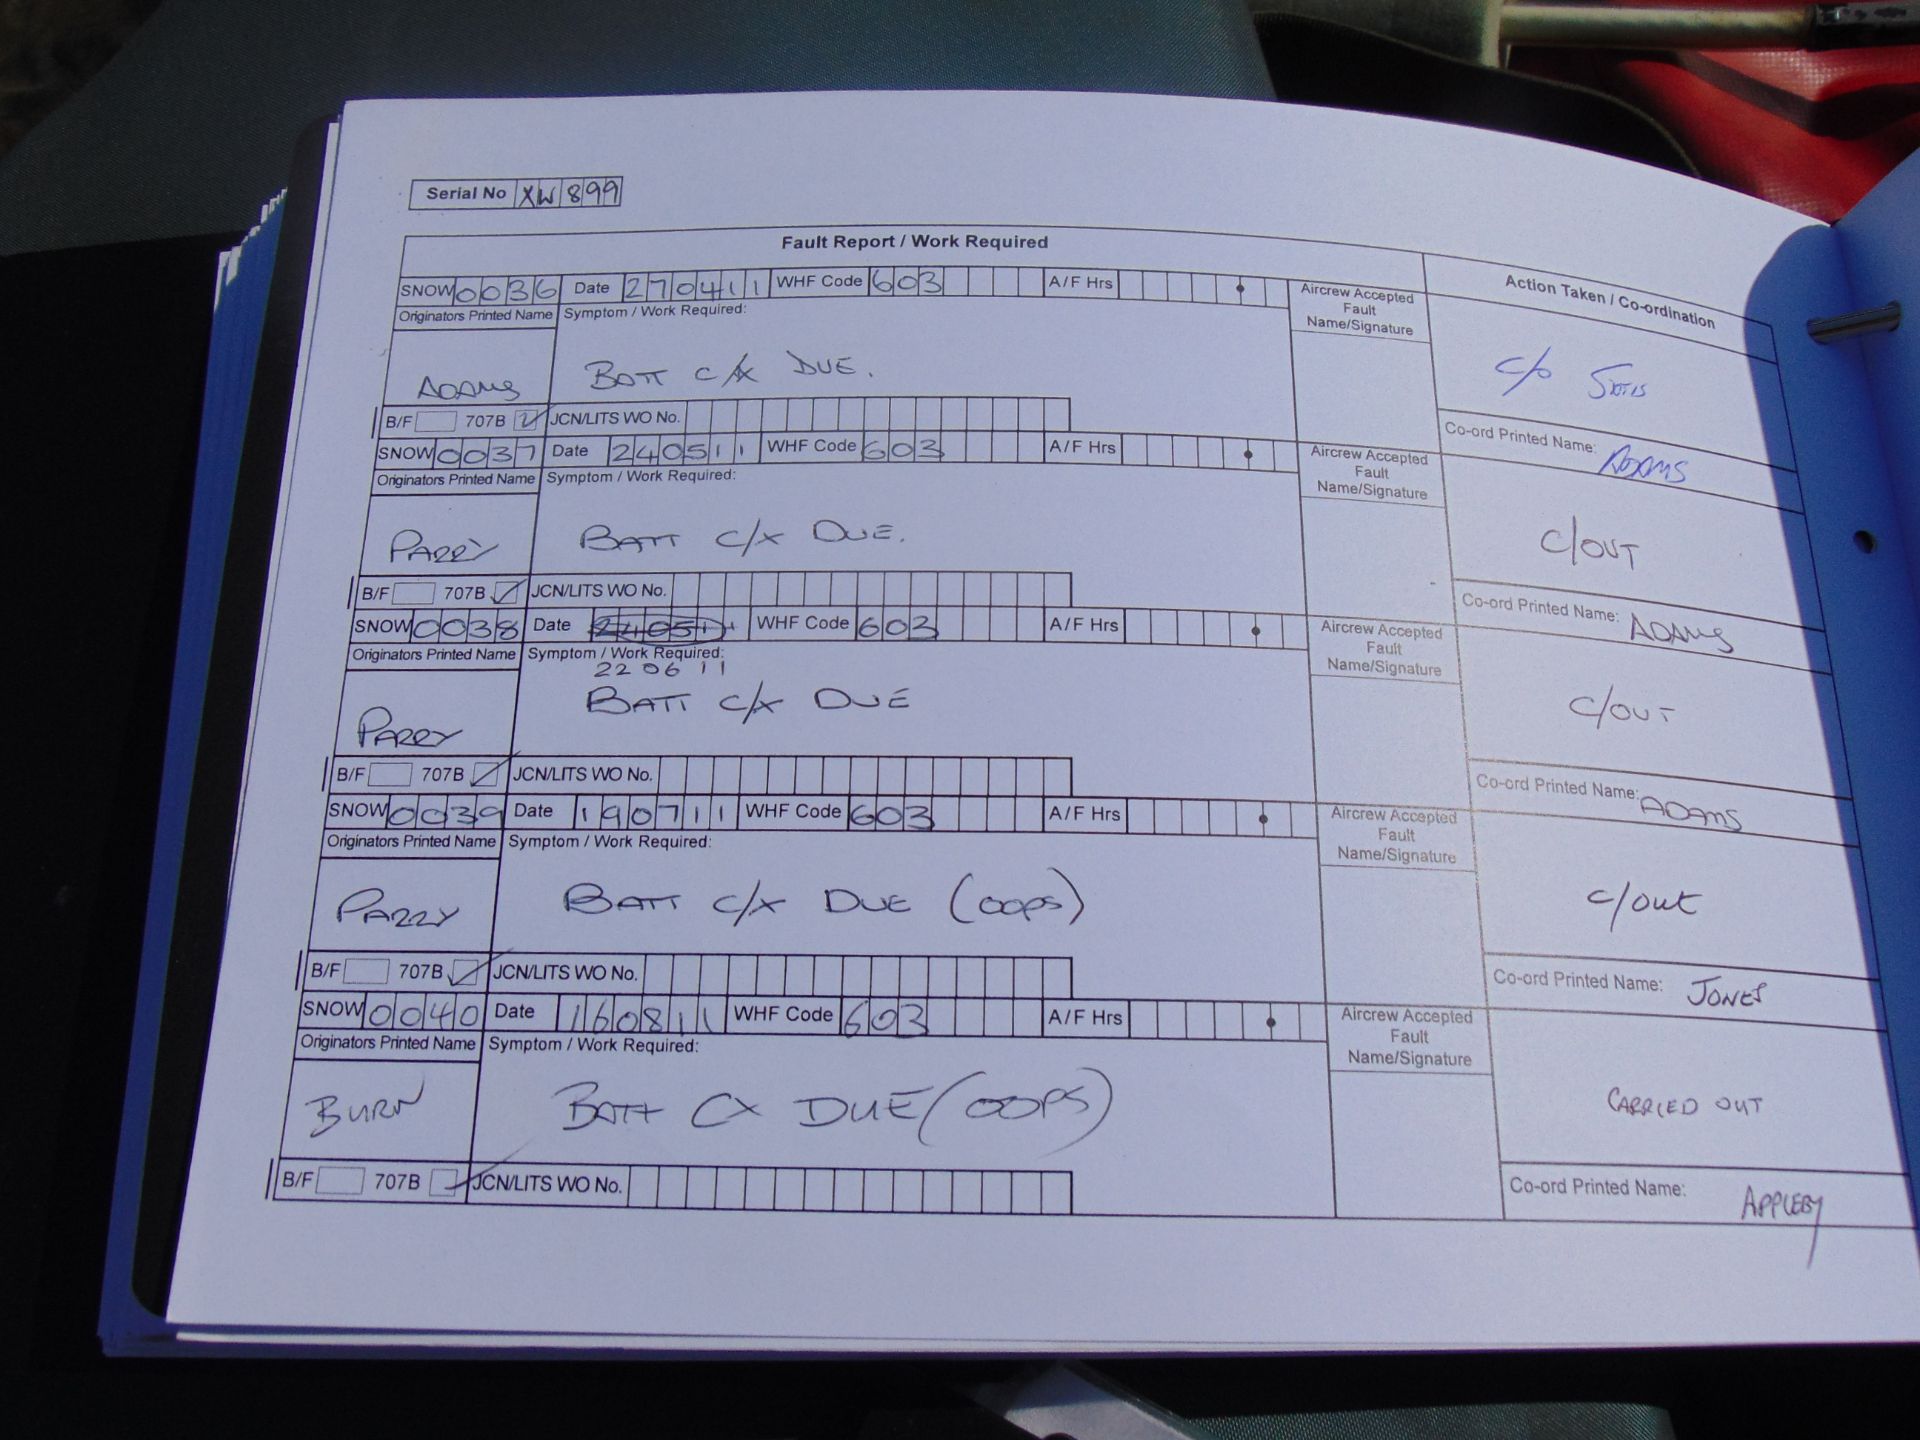 Serial No XW899
Fault Report / Work Required
Action Taken / Co-ordination
SNOW 0036 Date 270411 WHF Code 603 A/F Hrs
Aircrew Accepted Fault Name/Signature
Originators Printed Name Symptom / Work Required:
ADAMS BATT C/X DUE. C/O
B/F 707B JCN/LITS WO No.
Co-ord Printed Name: ADAMS
SNOW 0037 Date 240511 WHF Code 603 A/F Hrs
Aircrew Accepted Fault Name/Signature
Originators Printed Name Symptom / Work Required:
PARRY BATT C/X DUE. C/OUT
B/F 707B JCN/LITS WO No.
Co-ord Printed Name: ADAMS
SNOW 0038 Date 240511 WHF Code 603 A/F Hrs
Aircrew Accepted Fault Name/Signature
Originators Printed Name Symptom / Work Required:
22 06 11
PARRY BATT C/X DUE C/OUT
B/F 707B JCN/LITS WO No.
Co-ord Printed Name: ADAMS
SNOW 0039 Date 190711 WHF Code 603 A/F Hrs
Aircrew Accepted Fault Name/Signature
Originators Printed Name Symptom / Work Required:
PARRY BATT C/X DUE (OOPS) C/OUT
B/F 707B JCN/LITS WO No.
Co-ord Printed Name: JONES
SNOW 0040 Date 160811 WHF Code 603 A/F Hrs
Aircrew Accepted Fault Name/Signature
Originators Printed Name Symptom / Work Required:
BURN BATT CX DUE (OOPS) CARRIED OUT
B/F 707B JCN/LITS WO No.
Co-ord Printed Name: APPLEBY